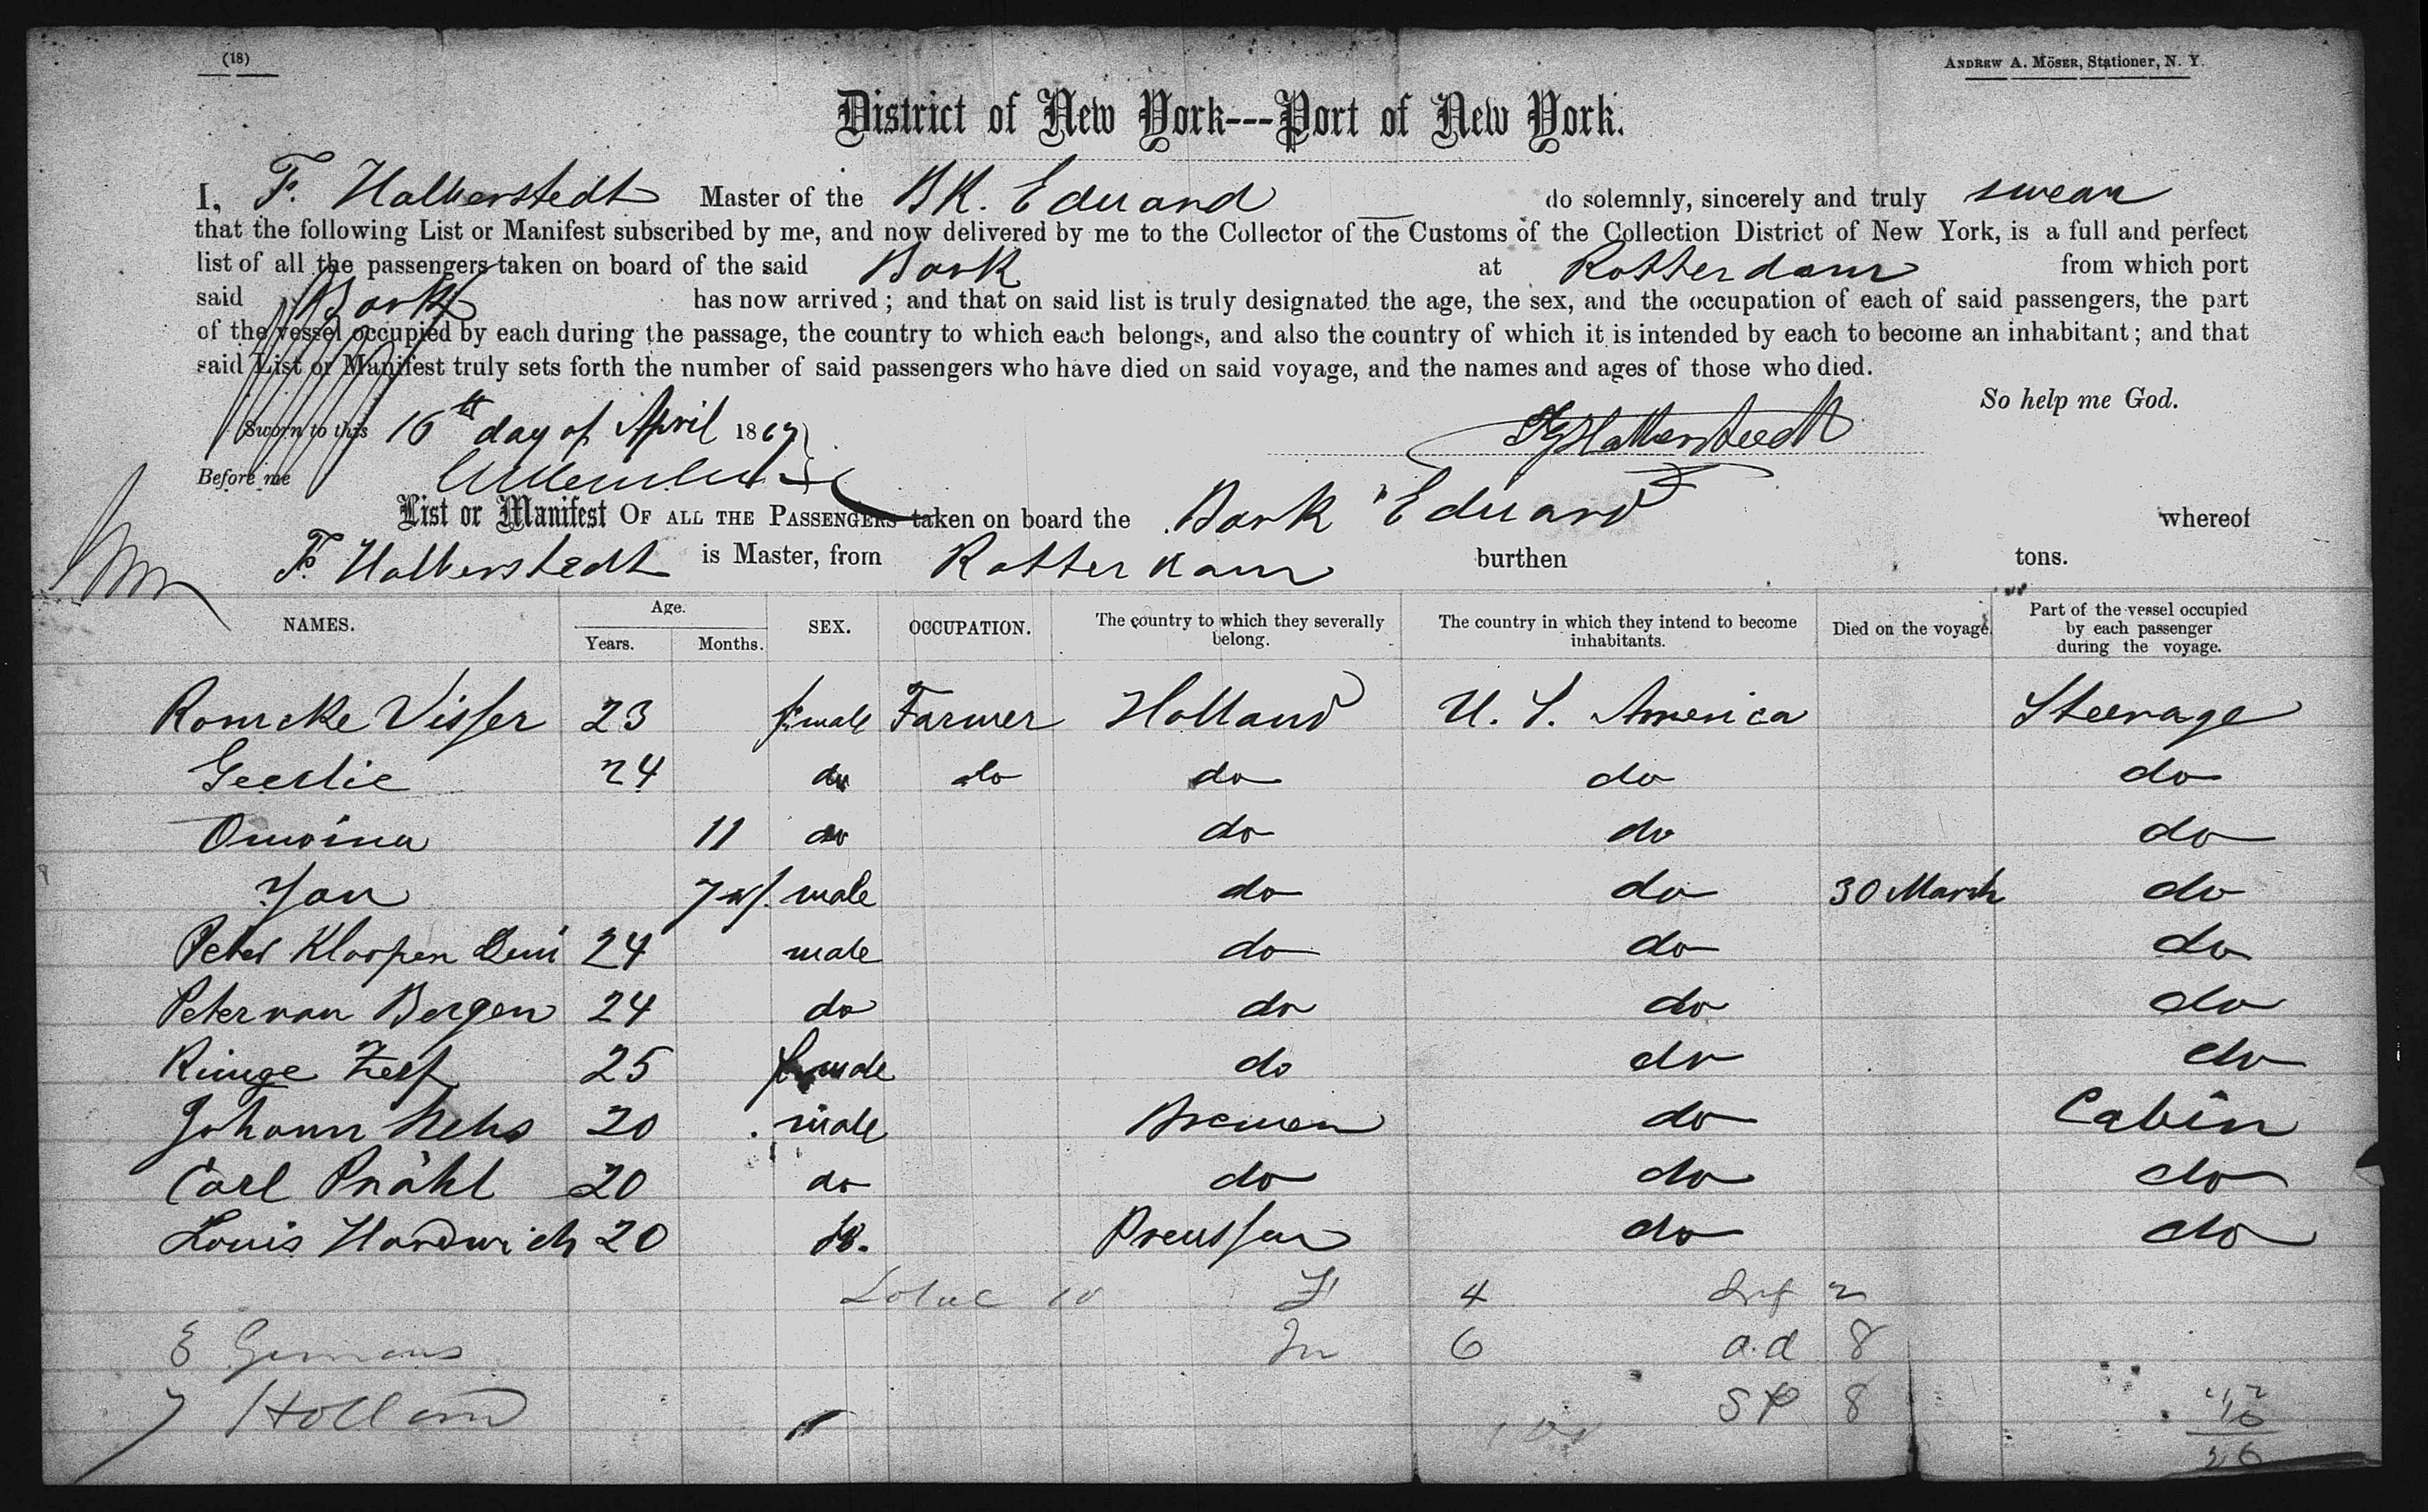 (18)
ANDREW A. MÖSER, Stationer, N. Y.
District of New York---Port of New York.
I, F. Halberstedt Master of the BK. Eduard do solemnly, sincerely and truly swear
that the following List or Manifest subscribed by me, and now delivered by me to the Collector of the Customs of the Collection District of New York, is a full and perfect
list of all the passengers taken on board of the said Bark at Rotterdam from which port
said Bark has now arrived; and that on said list is truly designated the age, the sex, and the occupation of each of said passengers, the part
of the vessel occupied by each during the passage, the country to which each belongs, and also the country of which it is intended by each to become an inhabitant; and that
said List or Manifest truly sets forth the number of said passengers who have died on said voyage, and the names and ages of those who died.
So help me God.
Sworn to this 16th day of April 1867
F Halberstedt
Before me
List or Manifest OF ALL THE PASSENGERS taken on board the Bark "Eduard" whereof
F. Halberstedt is Master, from Rotterdam burthen tons.
NAMES. Age. Years. Months. SEX. OCCUPATION. The country to which they severally belong. The country in which they intend to become inhabitants. Died on the voyage. Part of the vessel occupied by each passenger during the voyage.
Visser 23 female Farmer Holland U. S. America Steerage
Geertie 24 do do do do do
11 do do do do
Jan 7 male do do 30 March do
Peter 24 male do do do
Peter van Bergen 24 do do do do
25 female do do do
Johann 20 male Bremen do Cabin
Carl Prähl 20 do do do do
Louis Hardwich 20 do. Preussen do do
Total 10 F 4 2
Germans M 6 a.d 8
7 Holland 8
26